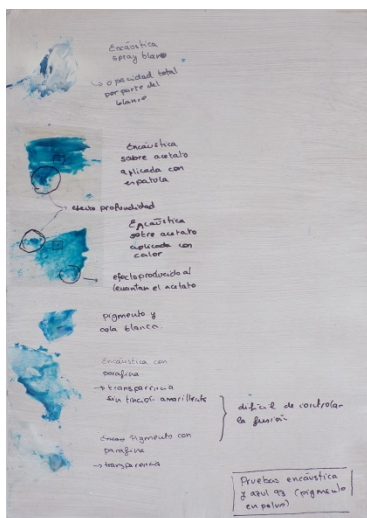 Encáustica
spray blanco
↳ opacidad total
por parte del
blanco
Encáustica
sobre acetato
aplicada con
espatula
efecto profundidad
Encáustica
sobre acetato
aplicada con
calor
→ efecto producido al
levantar el acetato
pigmento y
cola blanca
Encáustica con
parafina
→ transparencia
sin tinción amarillenta
Pigmento con
parafina
→ transparencia
dificil de controlar
la fusión
Pruebas encáustica
azul 93 (pigmento
en polvo)